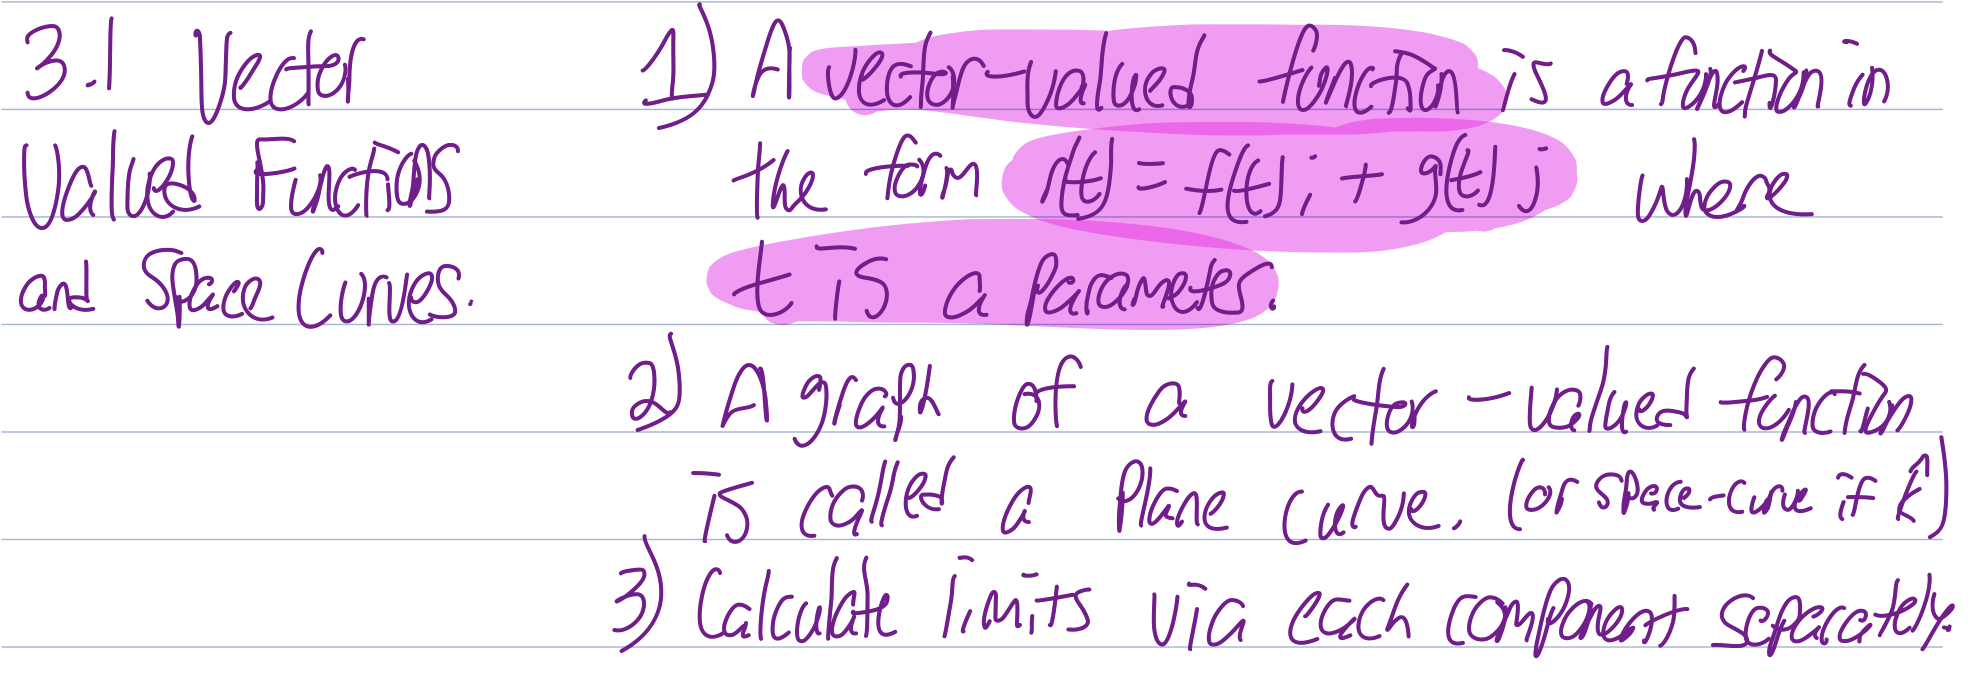 3.1 Vector
Valued Functions
and Space Curves.
1) A vector-valued function is a function in
the form r(t) = f(t) i + g(t) j where
t is a parameter.
2) A graph of a vector-valued function
is called a plane curve. (or space-curve if k̂)
3) Calculate limits via each component separately.